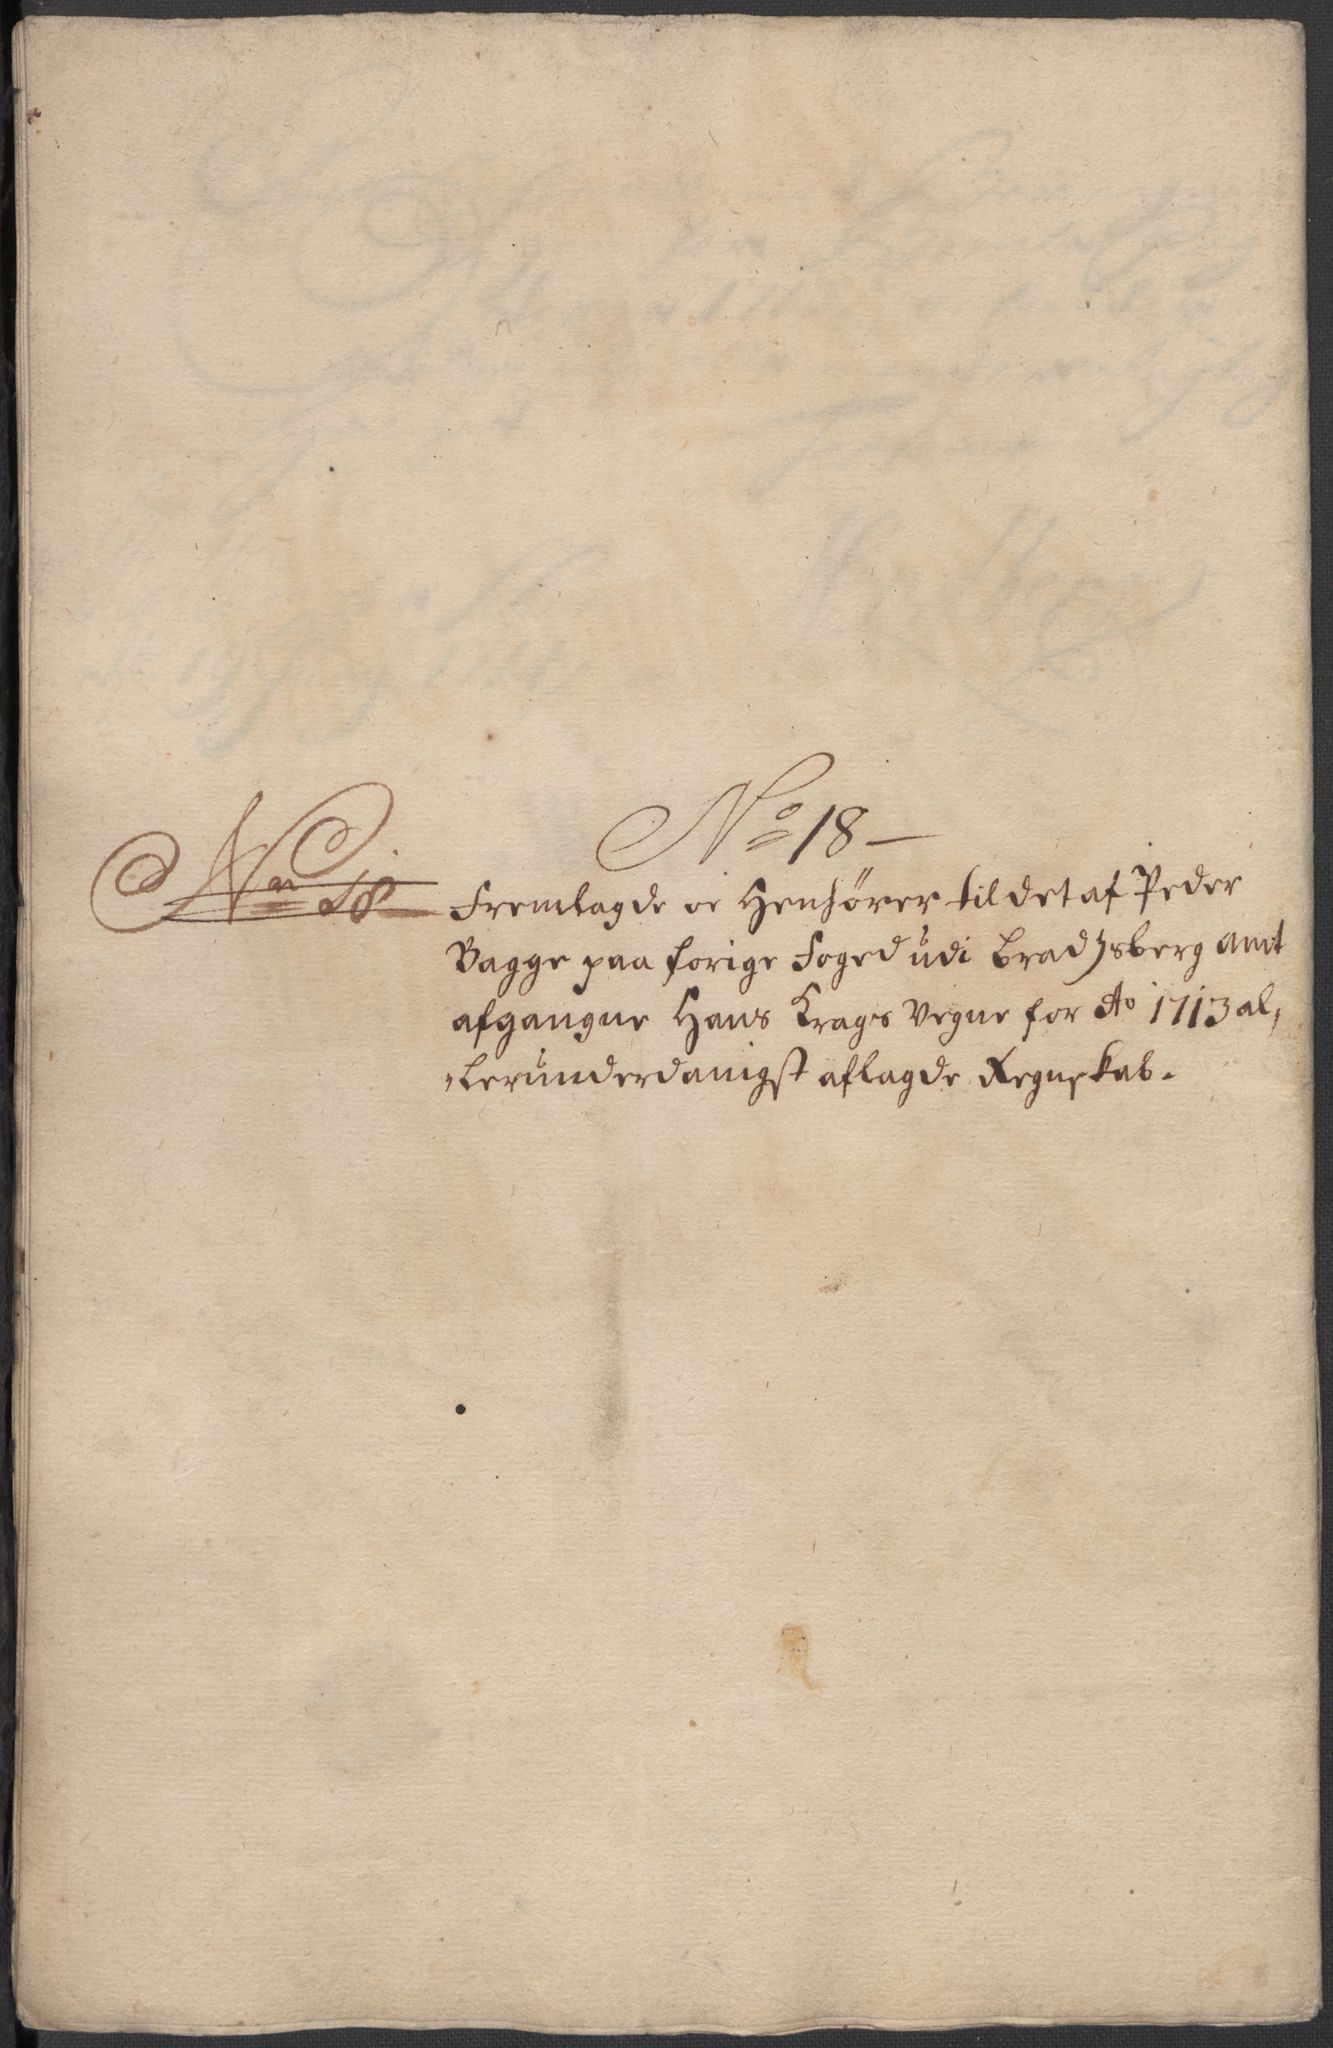 No 18
No 18
Fremlagde oc Henhører til det af Peder
Bagge paa forige Foged udi Bradtzberg amt
afgangne Hans Krags Vegne for Ao 1713 al,
lerunderdanigst aflagde Regnskab.